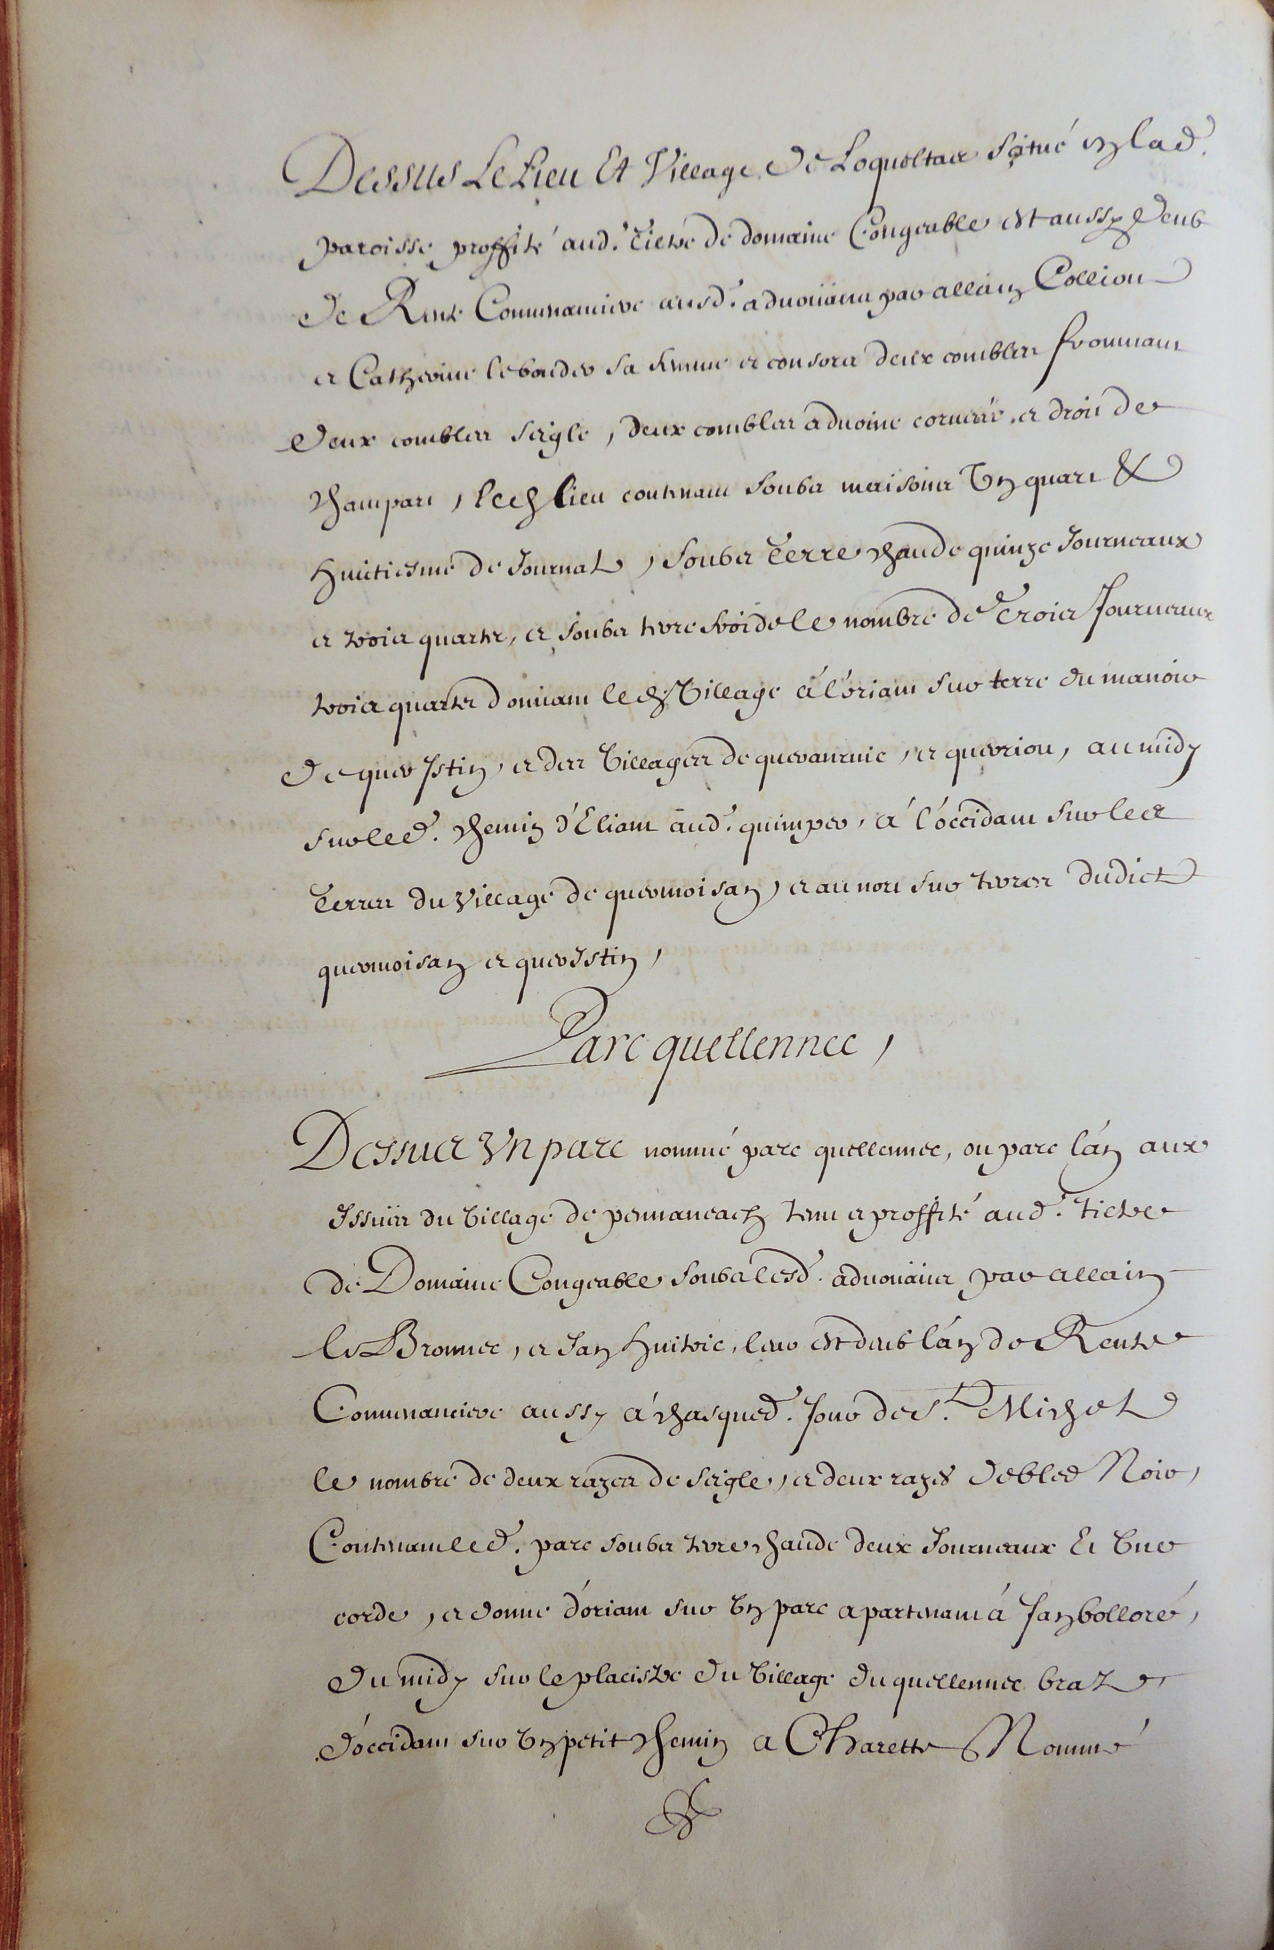 Dessus Le Lieu Et Village de Loqueltas Scitué en lad.
paroisse, proffité aud. tictre de domaine Congeable est aussy deub
de Rente Convenanciere ausd. advouänts par allain Colliou
et Catherine le bouder sa femme et consorts deux combles fromment
deux combles seigle, deux combles advoine cornière, et droit de
champart, led. lieu contenant soubs maisons Un quart &
huictiesme de Journal, soubs Terre chaude quinze Journeaux
et trois quarts, et soubs terre froide le nombre de Trois Journeaux
trois quarts donnant led. Village à l'oriant sur terre du manoir
de quer Istin, et des Villages de , et queriou, au midy
sur led. chemin d'Eliant aud. quimper, à l'occidant sur les
Terres du Village de quermoisan, et au nort sur terres dudict
quermoisan et querIstin,
Parc quellennec,
Dessus Un parc nommé parc quellennec, ou parc lán aux
Issuës du Village de pennaneach tenu et proffité aud. tictre
de Domaine Congeable soubs lesd. advouänts par allain
le Bronnec, et Jan huitric, leur est deub l'án de Rente
Convenanciere aussy á chasque d. Jour de St. Michel
le nombre de deux razes de seigle, et deux razes de bled Noir,
Contenant led. parc soubs terre chaude deux Journeaux Et Une
corde, et donne d'oriant sur Un parc apartenant á Jan bolloré,
du midy sur le placistre du Village du quellennec braz
d'occidant sur Un petit chemin a Charette Nommé